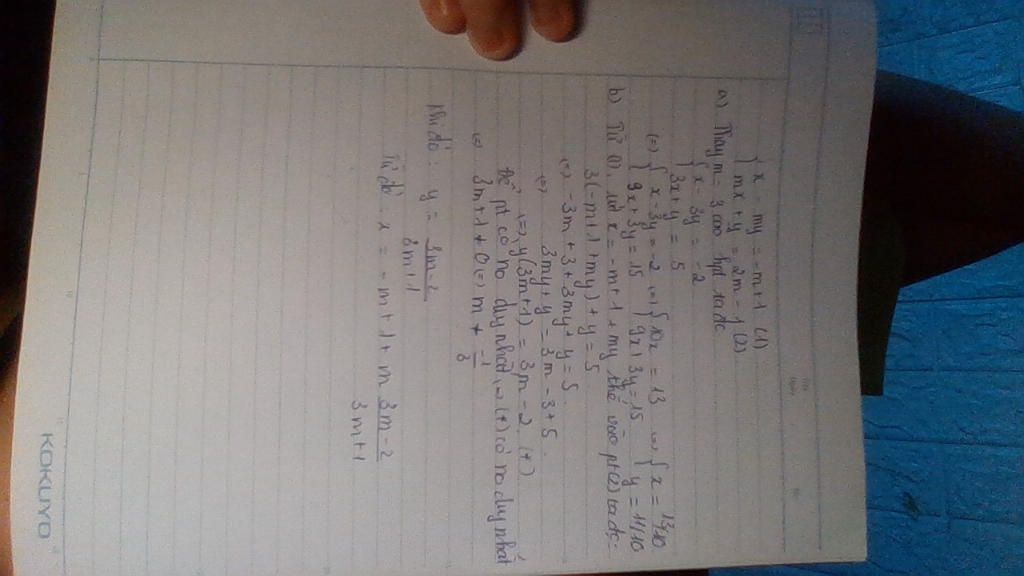 { x - my = -m+1 (1)
{ mx + y = 2m-1 (2)
a) Thay m = 3 vào hpt ta đc
{ x - 3y = -2
{ 3x + y = 5
(=) { x - 3y = -2 (=) { 10x = 13 (=) { x = 13/10
{ 9x + 3y = 15 { 9x + 3y = 15 { y = 11/10
b) Từ (1), x = -m+1+my thế vào pt(2) ta đc:
3(-m+1+my)+y = 5
(=) -3m+3+3my+y = 5
(=) 3my+y = 3m-3+5.
(=) y(3m+1) = 3m-2 (*)
Để pt có no duy nhất (=) (*) có no duy nhất
(=) 3m+1 ≠ 0 (=) m ≠ -1/3
Khi đó: y = 3m-2 / 3m+1
Từ đó x = -m+1+m 3m-2 / 3m+1
KOKUYO